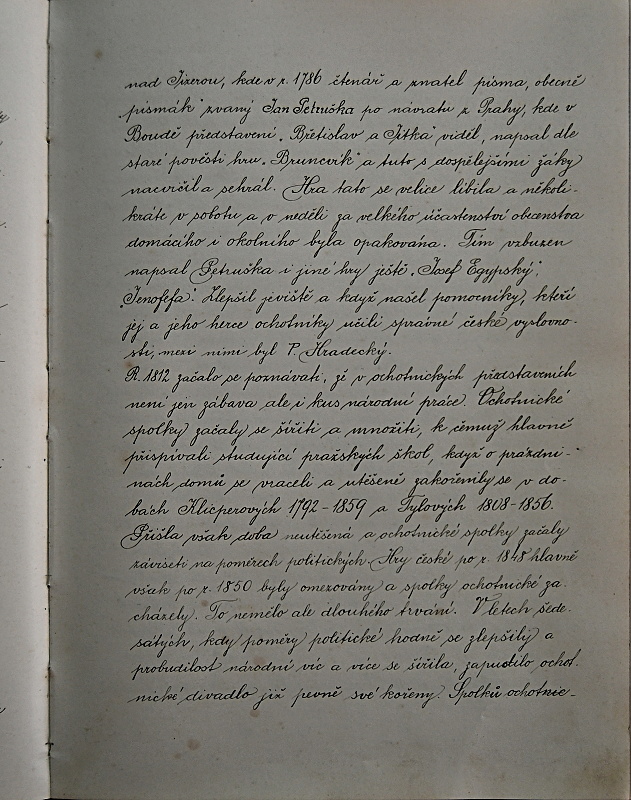 nad Jizerou, kde v r. 1786 čtenář a znatel písma, obecně
„písmák“ zvaný Jan Petruška po návratu z Prahy, kde v
Boudě představení „Břetislav a Jitka“ viděl, napsal dle
staré pověsti hru „Bruncvík“ a tuto s dospělejšími žáky
nacvičil a sehrál. Hra tato se velice líbila a několi-
kráte v sobotu a v neděli za velkého účastenství obecenstva
domácího i okolního byla opakována. Tím vzbuzen
napsal Petruška i jiné hry ještě „Josef Egypský“,
„Jenofefa“. Zlepšil jeviště a když našel pomocníky, kteří
jej a jeho herce ochotníky učili správné české vyslovno-
sti, mezi nimi byl P. Hradecký.
R. 1812 začalo se poznávati, že v ochotnických představeních
není jen zábava ale i kus národní práce. Ochotnické
spolky začaly se šířiti a množiti, k čemuž hlavně
přispívali studující pražských škol, když o prázdni-
nách domů se vraceli a utěšeně zakořenily se v do-
bách Klicperových 1792-1859 a Tylových 1808-1856.
Přišla však doba neutěšená a ochotnické spolky začaly
záviseti na poměrech politických. Hry české po r. 1848 hlavně
však po r. 1850 byly omezovány a spolky ochotnické za-
cházely. To nemělo ale dlouhého trvání. V letech šede-
sátých, kdy poměry politické hodně se zlepšily a
probudilost národní víc a více se šířila, zapustilo ochot-
nické divadlo již pevně své kořeny. Spolků ochotnic-